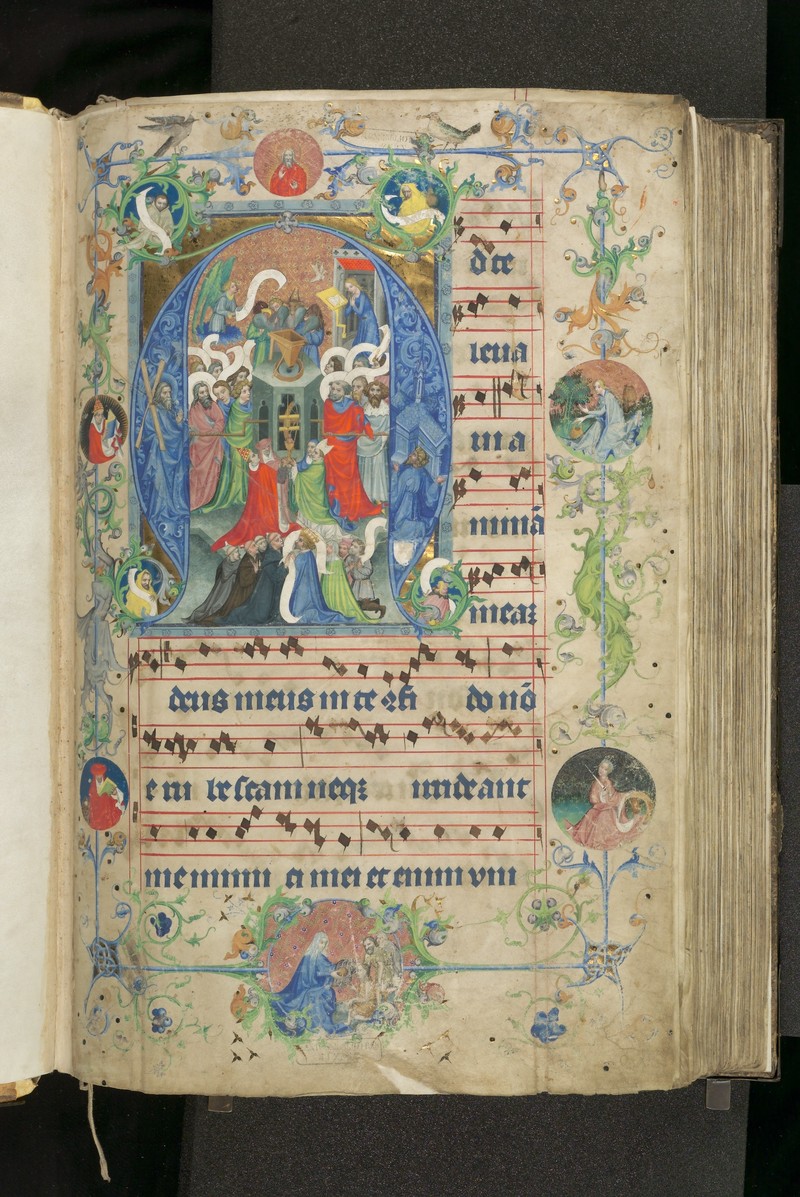 A
d te
leua
ui a
nimā
meaʒ
deus meus in te ɔfi do nō
e ru bescam neqʒ irrideant
me inimi ci mei et enim vni